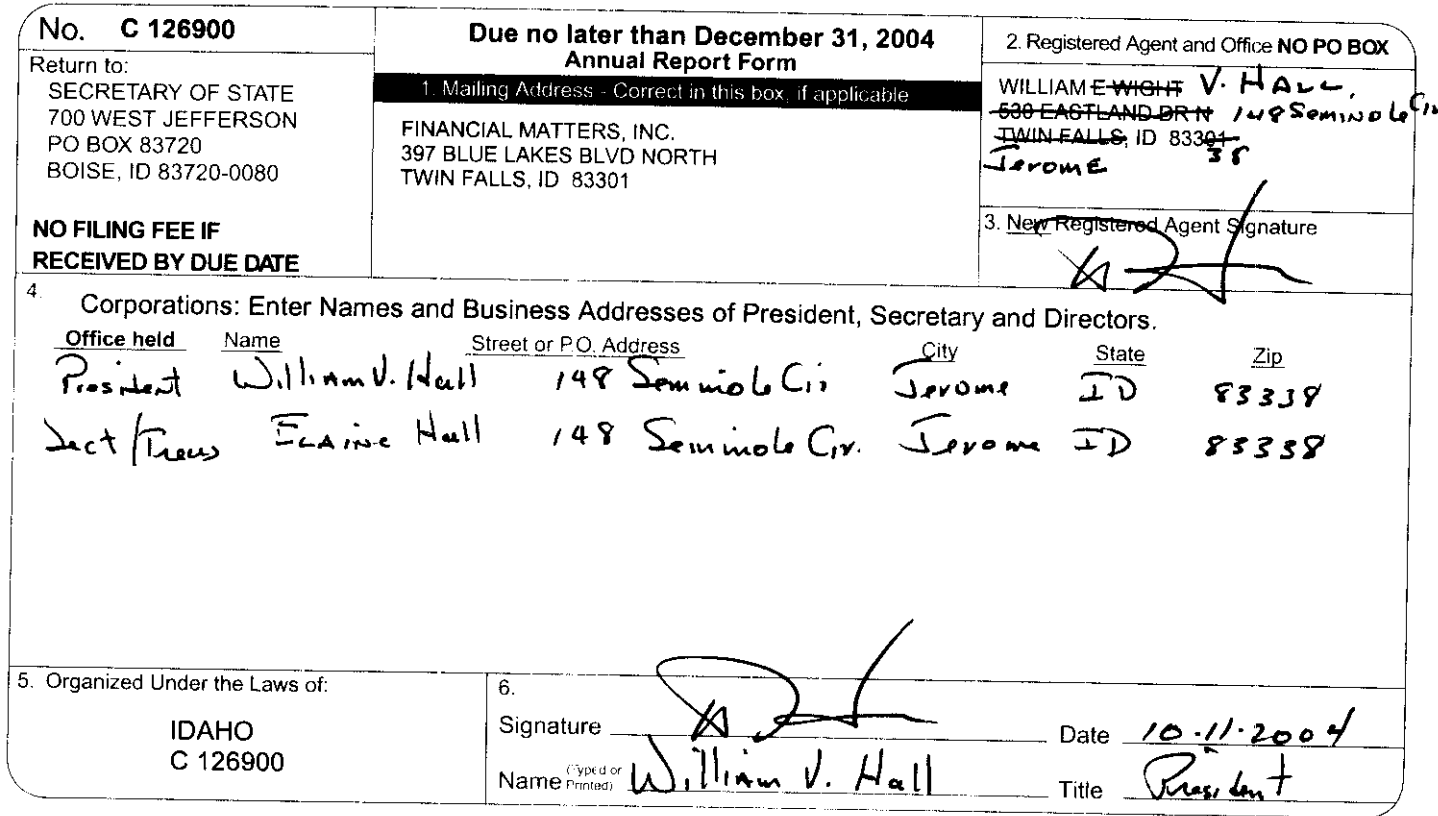 No. C 126900
Return to:
SECRETARY OF STATE
700 WEST JEFFERSON
PO BOX 83720
BOISE, ID 83720-0080
NO FILING FEE IF
RECEIVED BY DUE DATE
Due no later than December 31, 2004
Annual Report Form
1. Mailing Address - Correct in this box, if applicable
FINANCIAL MATTERS, INC.
397 BLUE LAKES BLVD NORTH
TWIN FALLS, ID 83301
2. Registered Agent and Office NO PO BOX
WILLIAM E WIGHT V. HALL,
530 EASTLAND DR N 148 Seminole Cir
TWIN FALLS, ID 83301
38
Jerome
3. New Registered Agent Signature
4.
Corporations: Enter Names and Business Addresses of President, Secretary and Directors.
Office held Name Street or P.O. Address City State Zip
President William V. Hall 148 Seminole Cir Jerome ID 83338
Sect/Treas Elaine Hall 148 Seminole Cir. Jerome ID 83338
5. Organized Under the Laws of:
IDAHO
C 126900
6.
Signature Date 10.11.2004
Name (Typed or Printed) William V. Hall Title President